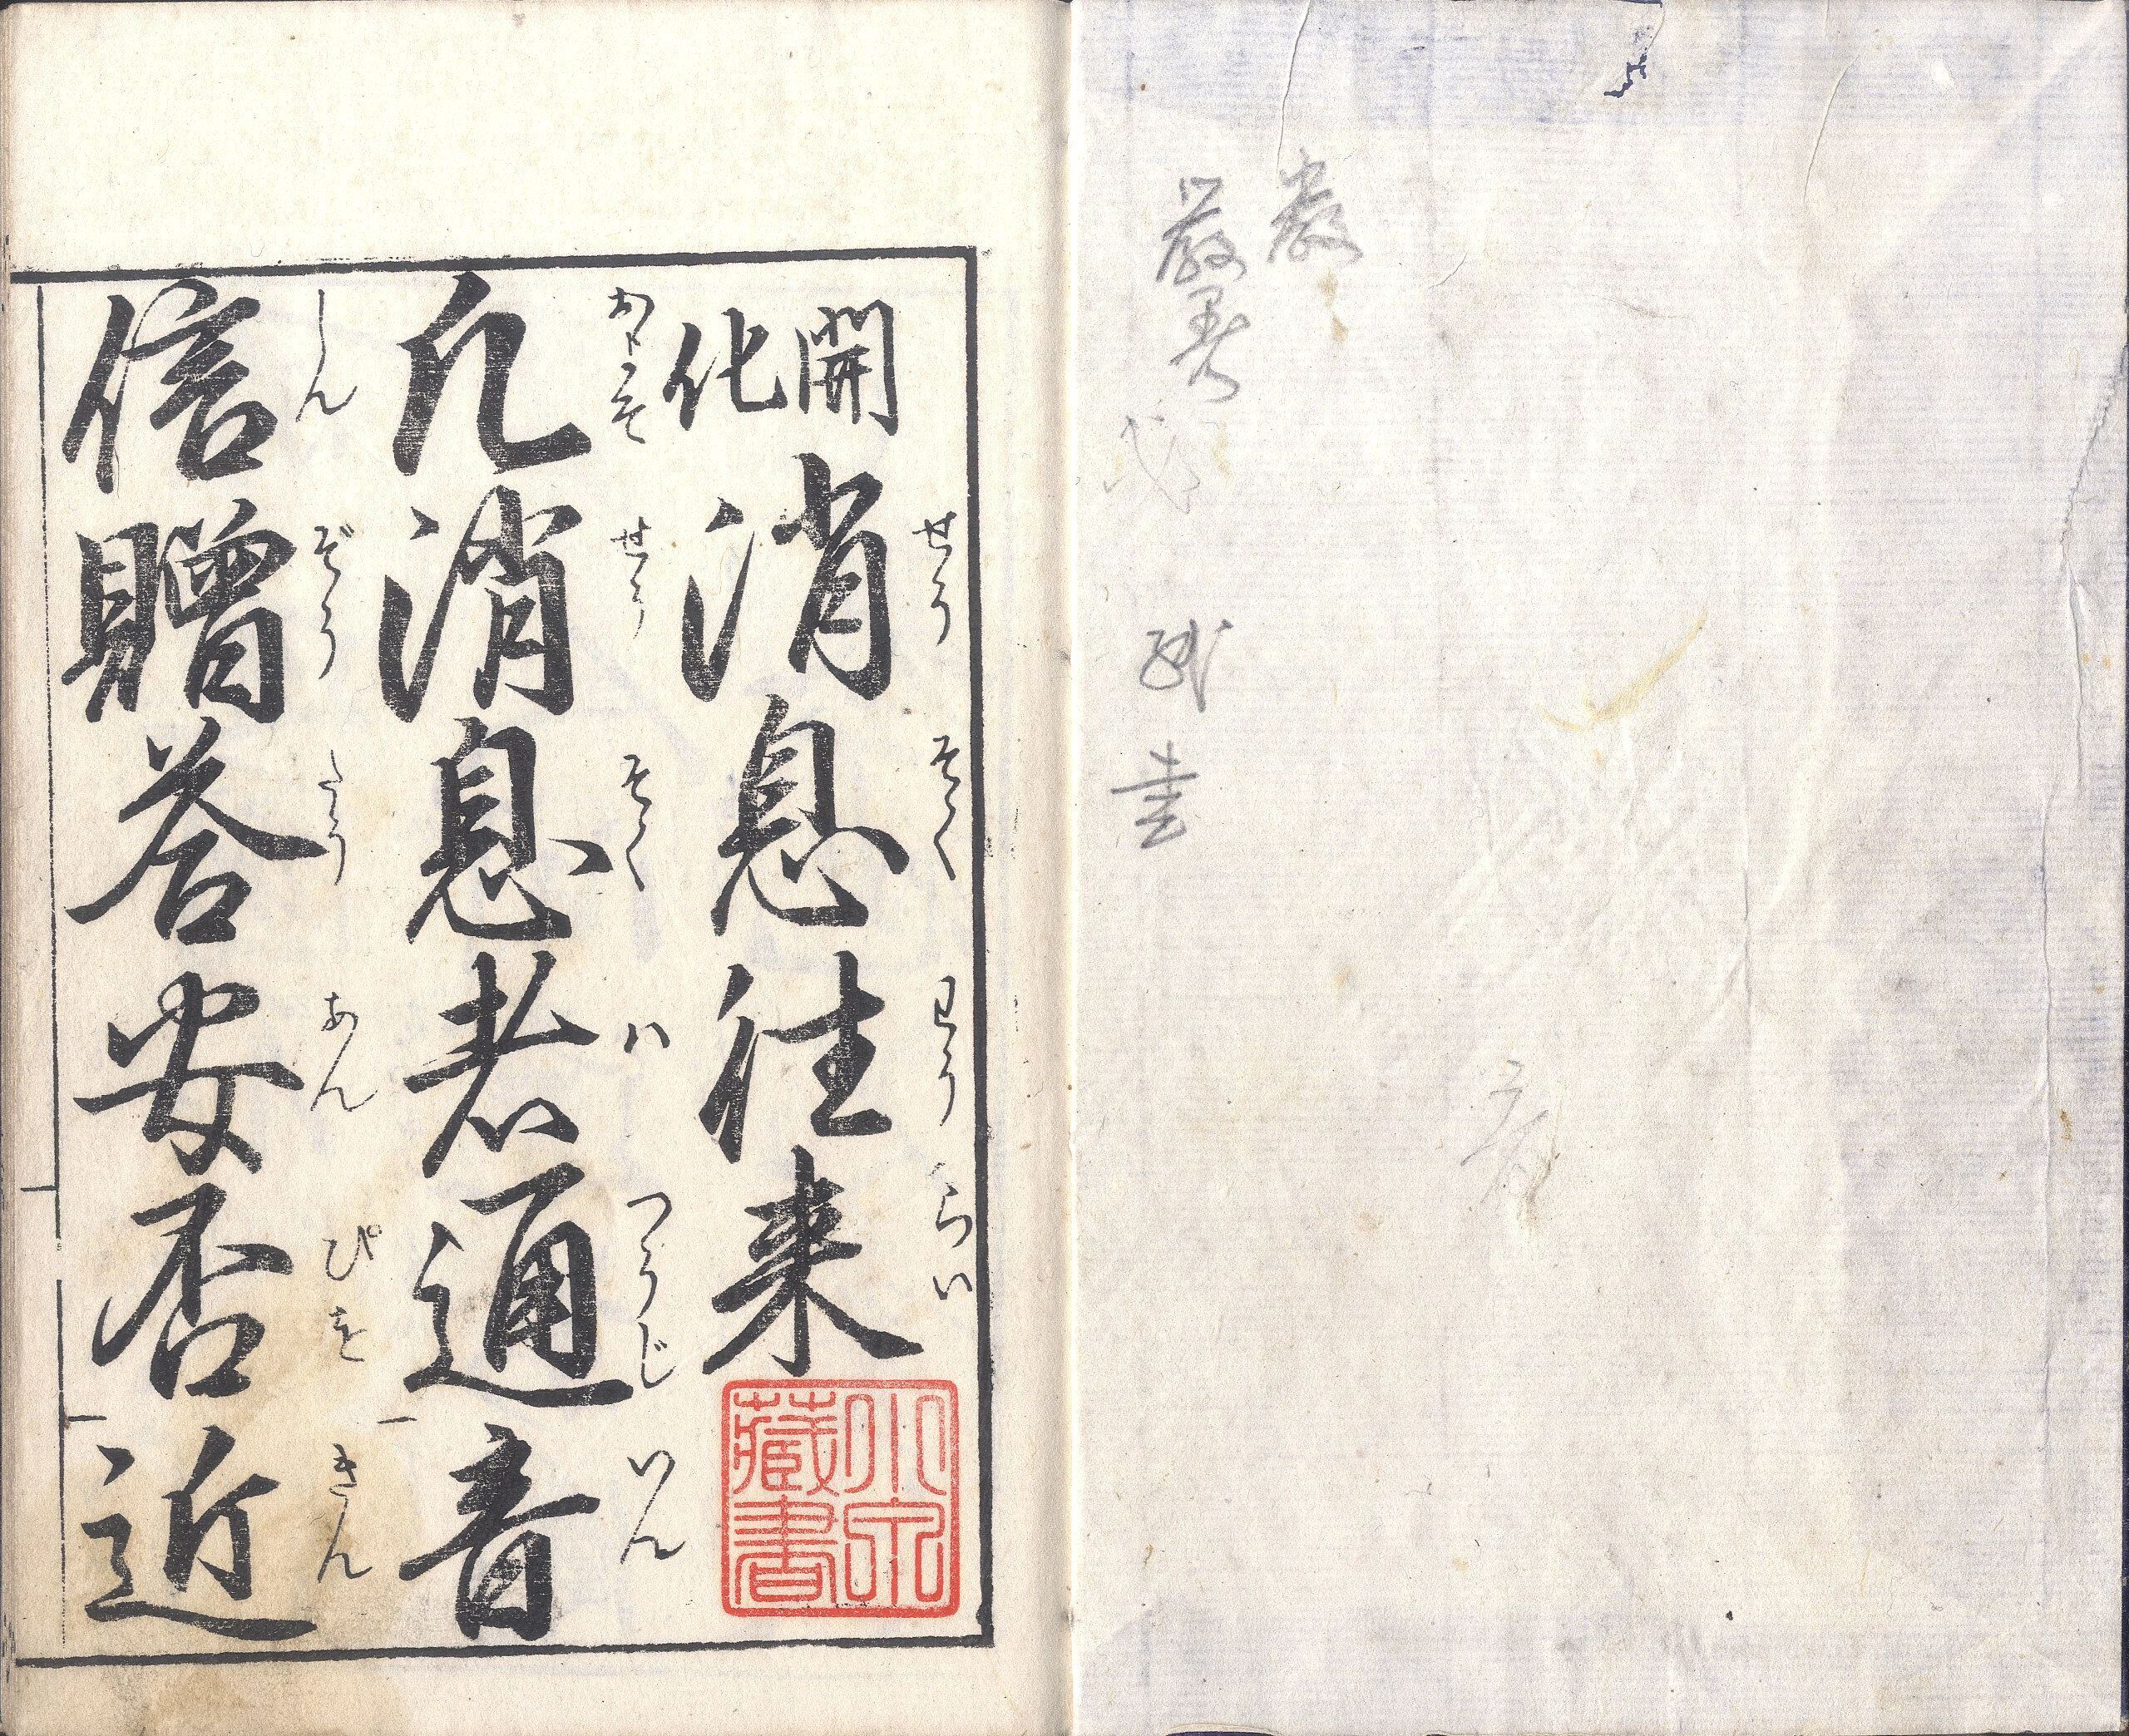 嚴
開化消息往来
せうそくわうらい
凡消息者通音
およそせうそくハつうじいん
信贈答安否近
しんぞうたうあんぴをきん
小穴藏書